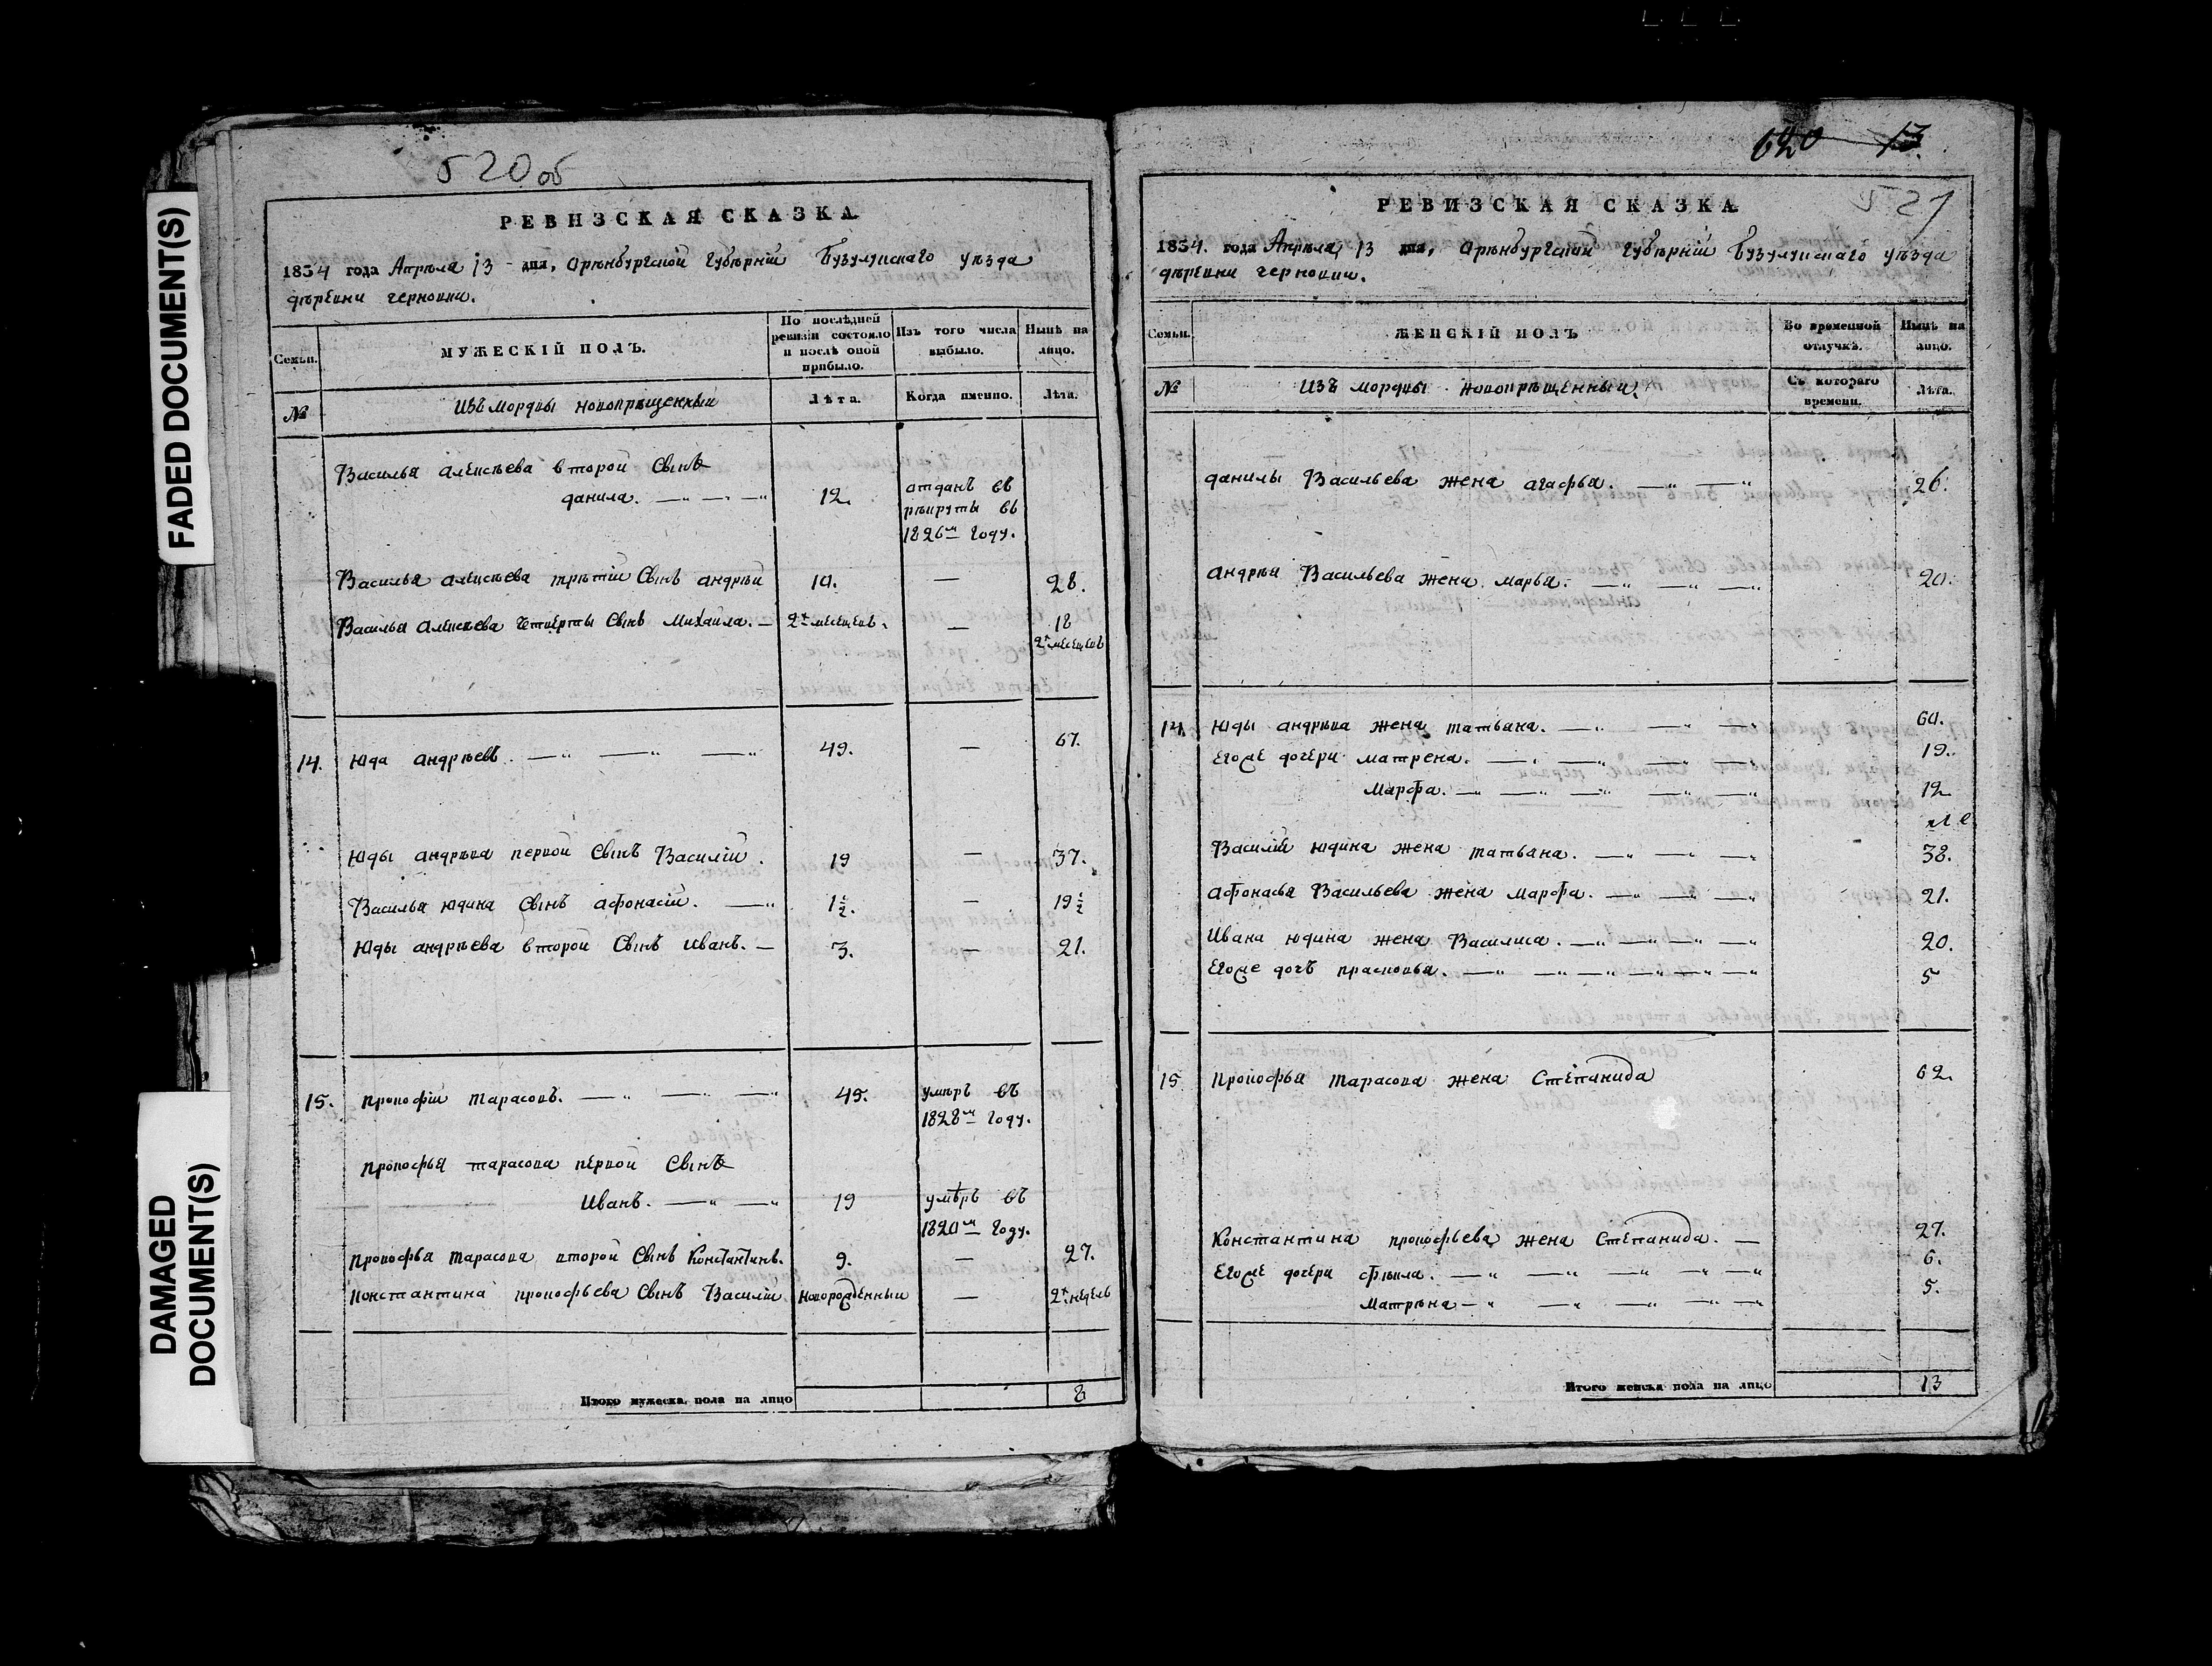 FADED DOCUMENT(S)
DAMAGED
DOCUMENT(S)
520 об
РЕВИЗСКАЯ СКАЗКА
1834 года Апрѣля 13 дня, Оренбургской губѣрнїи Бузулукскаго уѣзда
дѣревни черновки.
Семьи. МУЖЕСКІЙ ПОЛЪ. По послѣдней ревизіи состояло и послѣ оной прибыло. Изъ того числа выбыло. Нынѣ на лицо.
№ Изъ мордвы новокрѣщенный Лѣта. Когда именно. Лѣта.
Василья алексѣева второй Сынъ
данила. 12. отданъ въ
рѣкруты въ
1826м году.
Василья алексѣева трѣтїй Сынъ андрѣй 10. — 28.
Василья алексѣева четверты Сынъ михайла. — 2х месецевъ. — 18
2х месецевъ
14. Юда андрѣевъ. 49. — 67.
Юды андрѣва первой Сынъ Василїй. 19 — 37.
Василья юдина Сынъ афонасїй. 1½. — 19½
Юды андрѣева второй Сынъ иванъ. — 3. — 21.
15. прокофїй тарасовъ. 45. умѣръ въ
1828м году.
прокофья тарасова первой Сынъ
иванъ. 19 умѣръ въ
1820м году.
прокофья тарасова второй Сынъ Константинъ. 9. — 27.
константина прокофьева Сынъ Василїй новорожденный — 2х недель
Итого мужеска пола на лицо 8
620 13.
521
РЕВИЗСКАЯ СКАЗКА
1834. года Апрѣля 13 дня, Оренбургской губѣрнїи Бузулукскаго уѣзда
дѣревни черновки.
Семьи. ЖЕНСКІЙ ПОЛЪ Во временной отлучкѣ. Нынѣ на лицо.
№ изъ мордвы новокрѣщенныя. Съ котораго времени. Лѣта.
данилы Васильева жена агафья. 26.
андрѣя Васильева жена марья. 20.
14. Юды андрѣва жена татьяна. 60.
Егоже дочери матрена. 19.
марфа. 12
Василїя юдина жена татьяна. 38.
афонасья Васильева жена марфа. 21.
ивана юдина жена Василиса. 20.
Егоже дочъ прасковья. 5
15 прокофья тарасова жена Степанида 62.
Константина прокофьева жена Степанида. — 27.
Егоже дочери фѣкла. 6.
матрѣна 5.
Итого женска пола на лицо 13